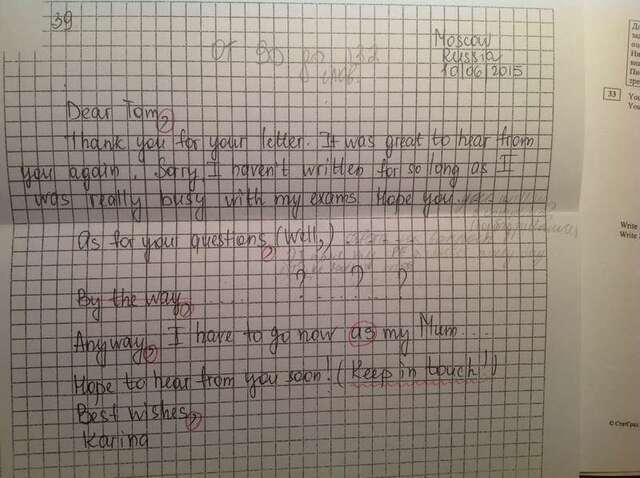 39
Moscow
от 90 до 132
Russia
слов.
10/06/2015
Dear Tom,
Thank you for your letter. It was great to hear from
you again. Sorry I haven't written for so long as I
was really busy with my exams. Hope you
As for your questions, (Well,)
? ? ?
By the way, .....
Anyway, I have to go now as my Mum....
Hope to hear from you soon! (Keep in touch!)
Best wishes,
Karina
33
You
You
Write
Write
© СтатГрад